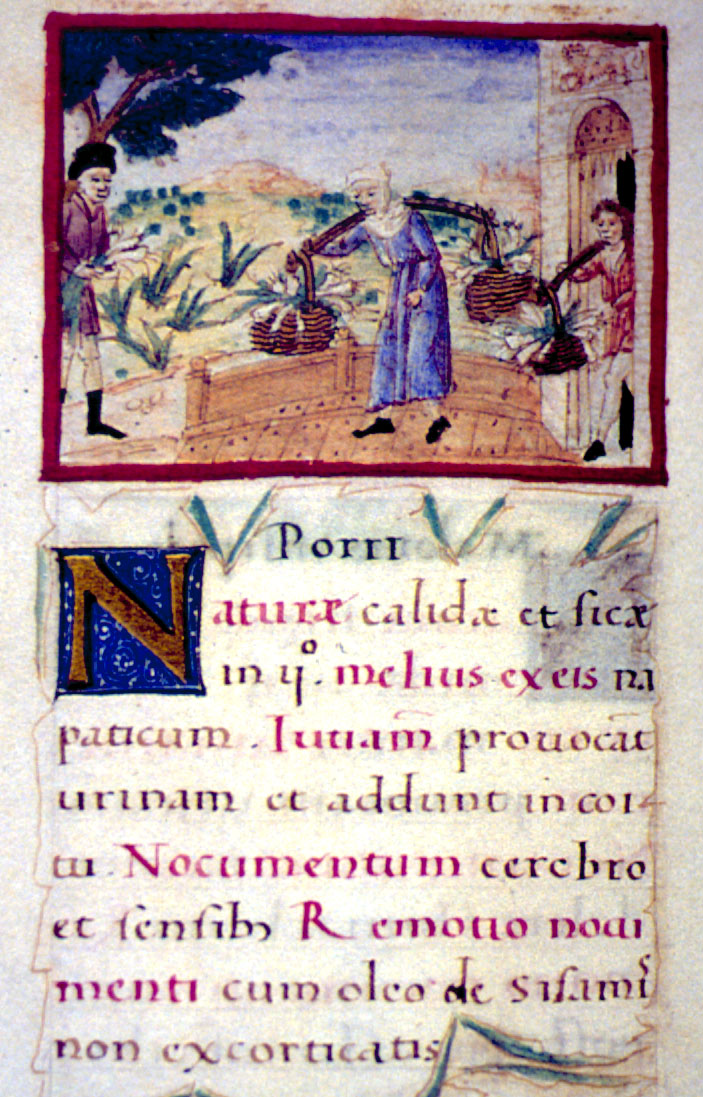 Porri
Naturæ calidæ et sicæ
in ijº. melius ex eis na
paticum. Iuuam̄ provocāt
urinam et addunt in coi-
tu. Nocumentum cerebro
et sensibꝫ Remotio nocu
menti cum oleo de sisami
non excorticatis